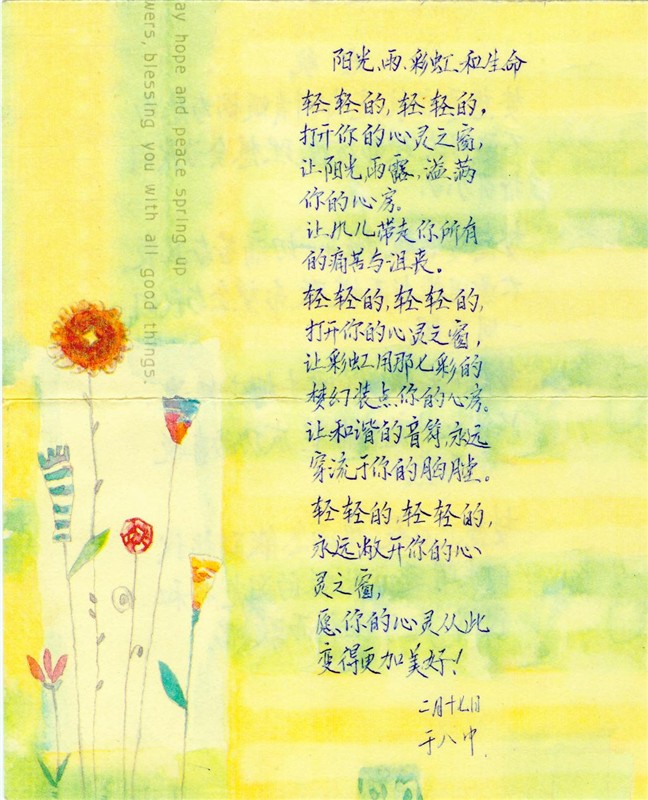 ay hope and peace spring up
wers, blessing you with all good things.
阳光、雨、彩虹、和生命
轻轻的,轻轻的,
打开你的心灵之窗,
让阳光,雨露,溢满
你的心房。
让风儿带走你所有
的痛苦与沮丧。
轻轻的,轻轻的,
打开你的心灵之窗,
让彩虹用那七彩的
梦幻装点你的心房。
让和谐的音符,永远
穿流于你的胸膛。
轻轻的,轻轻的,
永远敞开你的心
灵之窗,
愿你的心灵从此
变得更加美好!
二月十七日
于八中